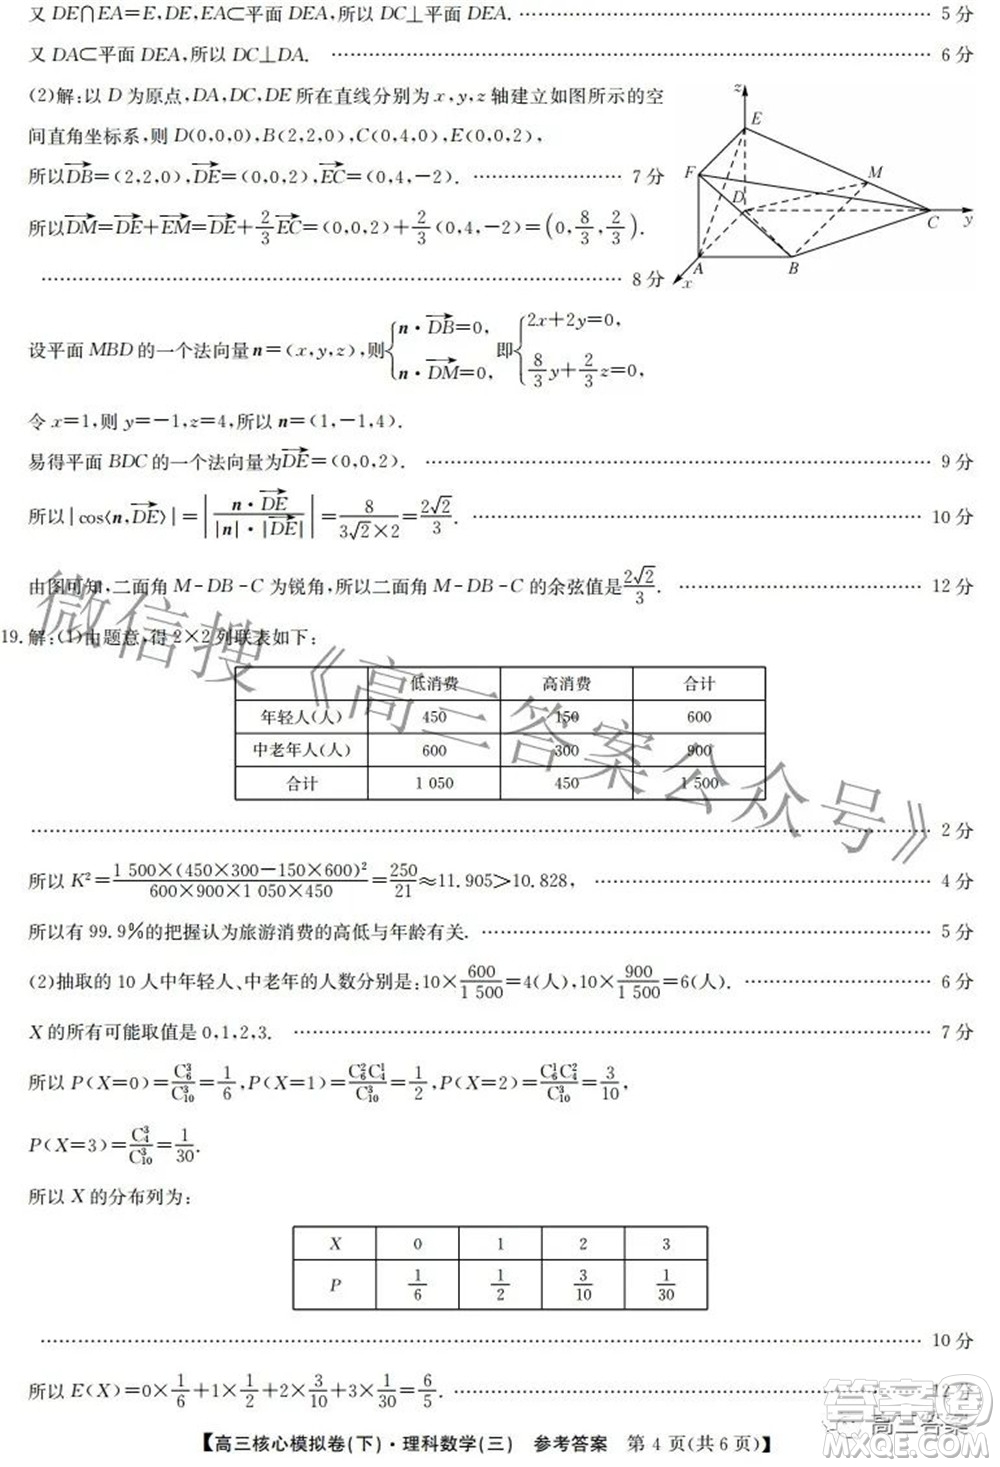 又 DE∩EA=E,DE,EA⊂平面 DEA,所以 DC⊥平面 DEA. …… 5 分
又 DA⊂平面 DEA,所以 DC⊥DA. …… 6 分
(2)解:以 D 为原点,DA,DC,DE 所在直线分别为 x,y,z 轴建立如图所示的空
间直角坐标系,则 D(0,0,0),B(2,2,0),C(0,4,0),E(0,0,2),
所以$\overrightarrow{DB}$=(2,2,0),$\overrightarrow{DE}$=(0,0,2),$\overrightarrow{EC}$=(0,4,-2). …… 7 分
所以$\overrightarrow{DM}$=$\overrightarrow{DE}$+$\overrightarrow{EM}$=$\overrightarrow{DE}$+$\frac{2}{3}\overrightarrow{EC}$=(0,0,2)+$\frac{2}{3}$(0,4,-2)=$\left(0,\frac{8}{3},\frac{2}{3}\right)$.
…… 8 分
z
E
F
M
D
C
y
A
B
x
设平面 MBD 的一个法向量 n=(x,y,z),则$\begin{cases}n·\overrightarrow{DB}=0,\\n·\overrightarrow{DM}=0,\end{cases}$即$\begin{cases}2x+2y=0,\\\frac{8}{3}y+\frac{2}{3}z=0,\end{cases}$
令 x=1,则 y=-1,z=4,所以 n=(1,-1,4).
易得平面 BDC 的一个法向量为$\overrightarrow{DE}$=(0,0,2). …… 9 分
所以|cos⟨n,$\overrightarrow{DE}$⟩|=$\left|\frac{n·\overrightarrow{DE}}{|n|·|\overrightarrow{DE}|}\right|$=$\frac{8}{3\sqrt{2}×2}$=$\frac{2\sqrt{2}}{3}$. …… 10 分
由图可知,二面角 M-DB-C 为锐角,所以二面角 M-DB-C 的余弦值是$\frac{2\sqrt{2}}{3}$. …… 12 分
19.解:(1)由题意,得 2×2 列联表如下:
低消费 高消费 合计
年轻人(人) 450 150 600
中老年人(人) 600 300 900
合计 1 050 450 1 500
…… 2 分
所以 K²=$\frac{1\ 500×(450×300-150×600)^2}{600×900×1\ 050×450}$=$\frac{250}{21}$≈11.905>10.828, …… 4 分
所以有 99.9%的把握认为旅游消费的高低与年龄有关. …… 5 分
(2)抽取的 10 人中年轻人、中老年的人数分别是:10×$\frac{600}{1\ 500}$=4(人),10×$\frac{900}{1\ 500}$=6(人). …… 6 分
X 的所有可能取值是 0,1,2,3. …… 7 分
所以 P(X=0)=$\frac{C_6^3}{C_{10}^3}$=$\frac{1}{6}$,P(X=1)=$\frac{C_6^2C_4^1}{C_{10}^3}$=$\frac{1}{2}$,P(X=2)=$\frac{C_6^1C_4^2}{C_{10}^3}$=$\frac{3}{10}$,
P(X=3)=$\frac{C_4^3}{C_{10}^3}$=$\frac{1}{30}$.
所以 X 的分布列为:
X 0 1 2 3
P $\frac{1}{6}$ $\frac{1}{2}$ $\frac{3}{10}$ $\frac{1}{30}$
…… 10 分
所以 E(X)=0×$\frac{1}{6}$+1×$\frac{1}{2}$+2×$\frac{3}{10}$+3×$\frac{1}{30}$=$\frac{6}{5}$. …… 12 分
【高三核心模拟卷(下)·理科数学(三) 参考答案 第 4 页(共 6 页)】
微信搜《高三答案公众号》
高三答案
答案圈